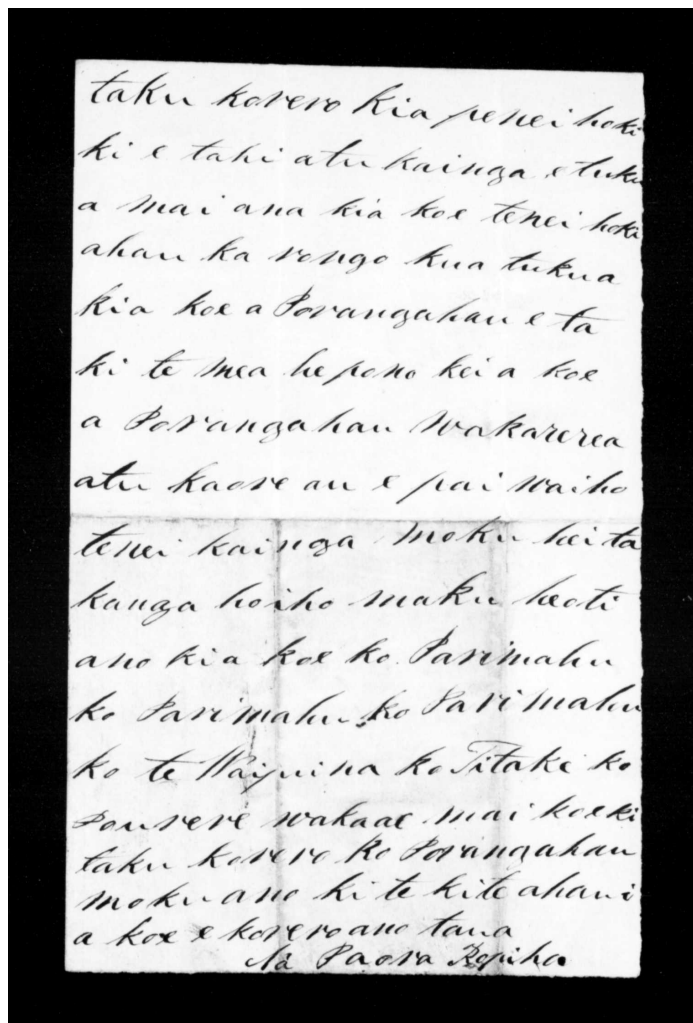 taku korero kia penei hoki
ki e tahi atu kainga e tuku
a mai ana kia koe tenei hoki
ahau ka rongo kua tukua
kia koe a Porangahau e ta
ki te mea he pono kei a koe
a Porangahau wakarerea
atu kaore au e pai waiho
tenei kainga moku hei ta
kanga hoiho maku heoti
ano kia koe ko Parimahu
ko Parimahu ko Parimahu
ko te Waipuina ko Titaki ko
Pourere wakaae mai koe ki
taku korero ko Porangahau
moku ano ki te kite ahau i
a koe e korero ano taua
Na Paora Ropiha